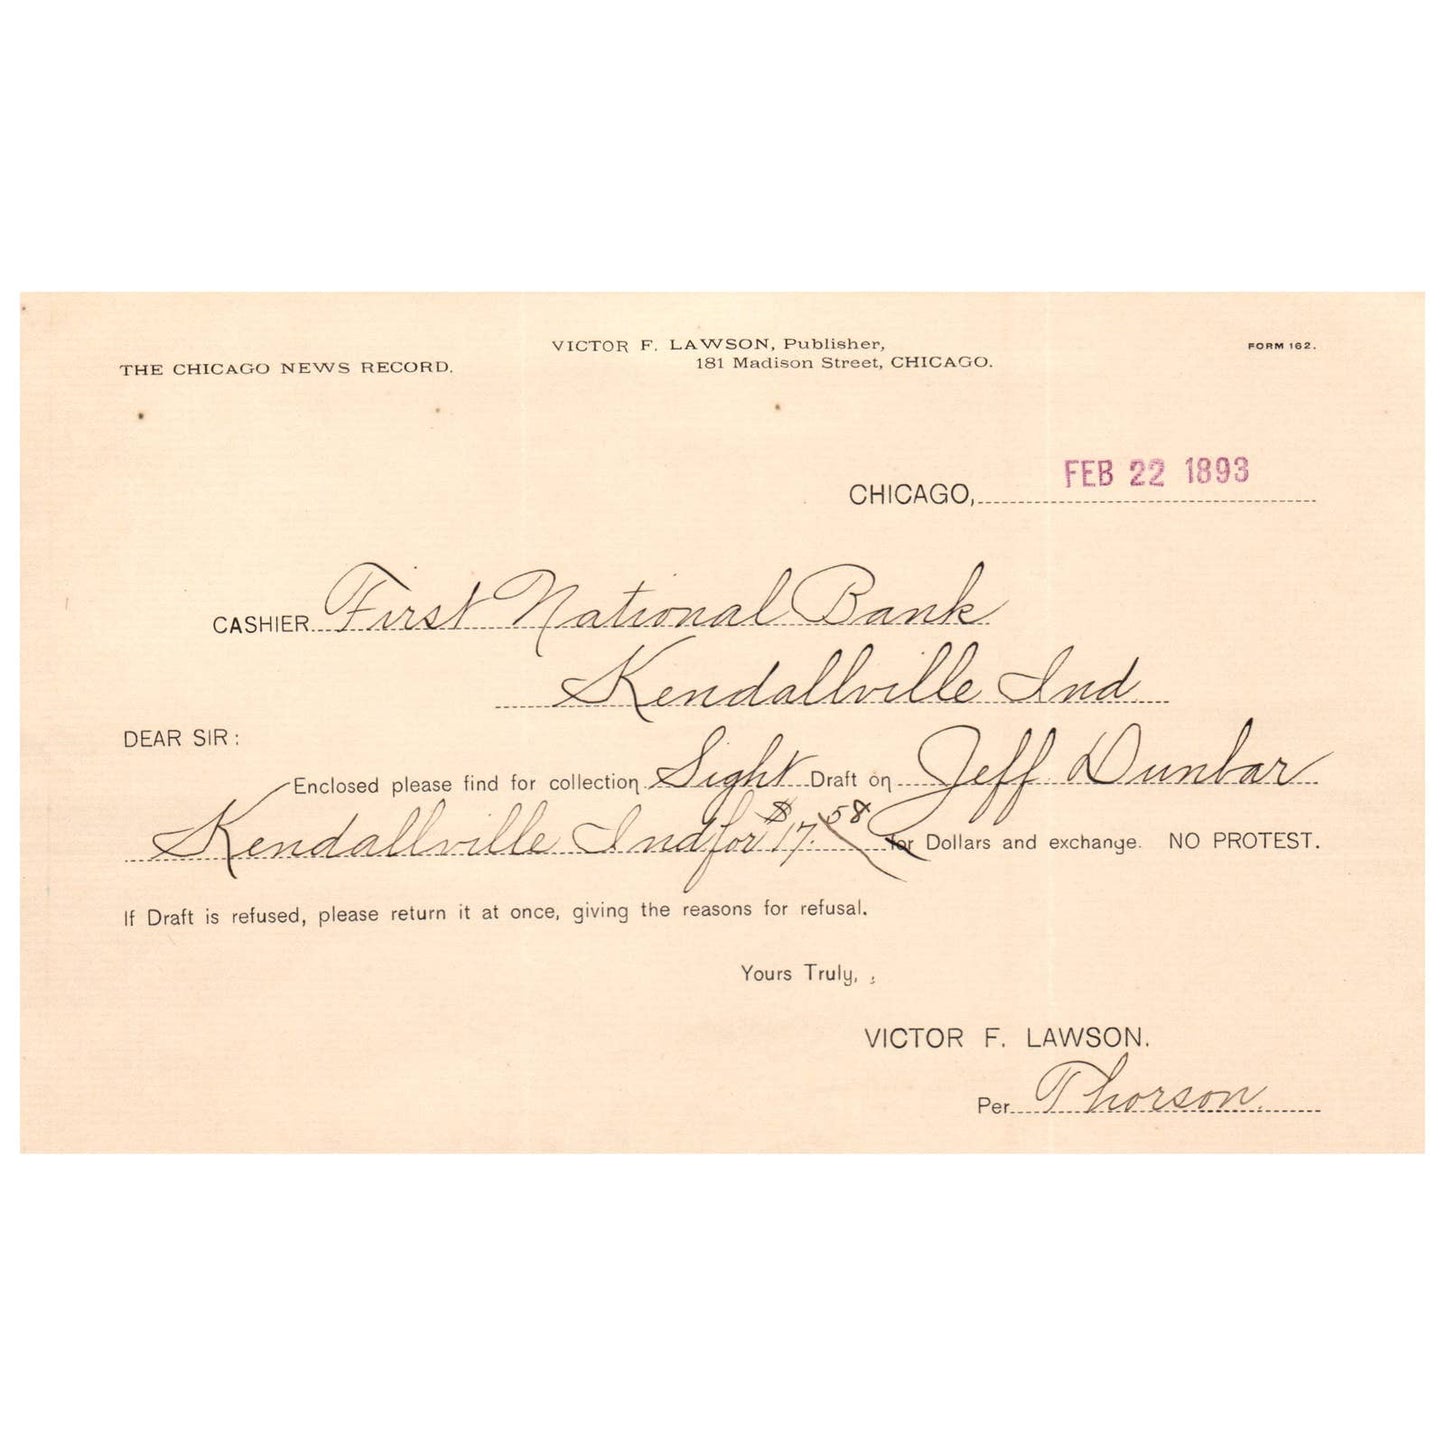 VICTOR F. LAWSON, Publisher,
181 Madison Street, CHICAGO.
FORM 162.
THE CHICAGO NEWS RECORD.
CHICAGO, FEB 22 1893
CASHIER First National Bank
Kendallville Ind
DEAR SIR:
Enclosed please find for collection Sight Draft on Jeff Dunbar
Kendallville Ind for $17.58 for Dollars and exchange. NO PROTEST.
If Draft is refused, please return it at once, giving the reasons for refusal.
Yours Truly,
VICTOR F. LAWSON.
Per Thorson.